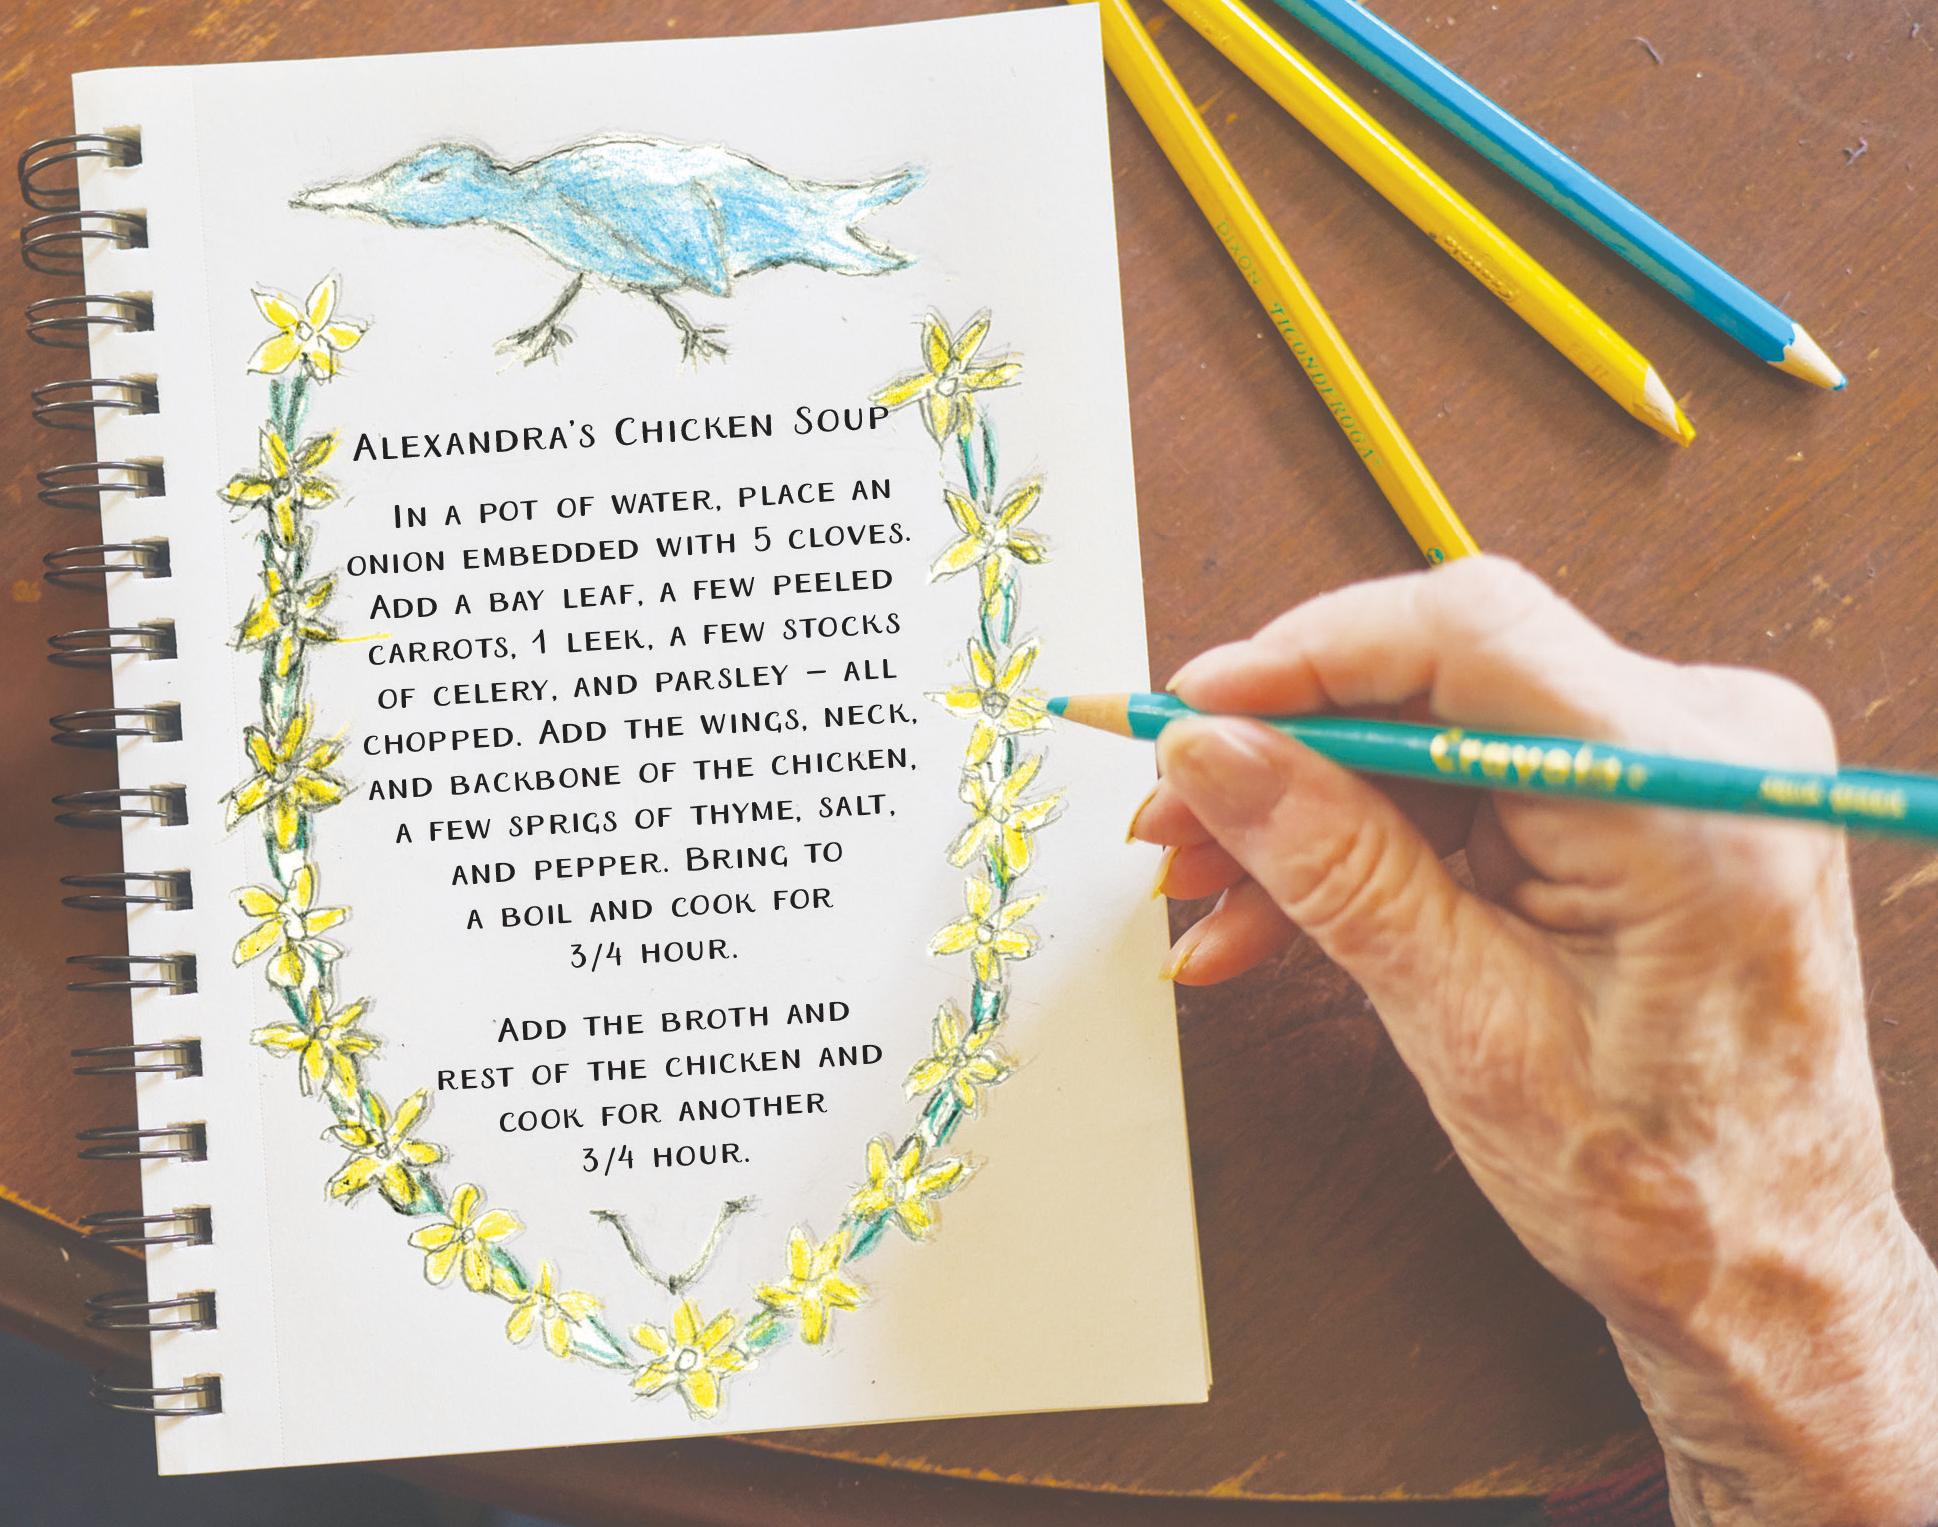 Alexandra's Chicken Soup
In a pot of water, place an
onion embedded with 5 cloves.
Add a bay leaf, a few peeled
carrots, 1 leek, a few stocks
of celery, and parsley – all
chopped. Add the wings, neck,
and backbone of the chicken,
a few sprigs of thyme, salt,
and pepper. Bring to
a boil and cook for
3/4 hour.
Add the broth and
rest of the chicken and
cook for another
3/4 hour.
DIXON TICONDEROGA
Crayola
Crayola